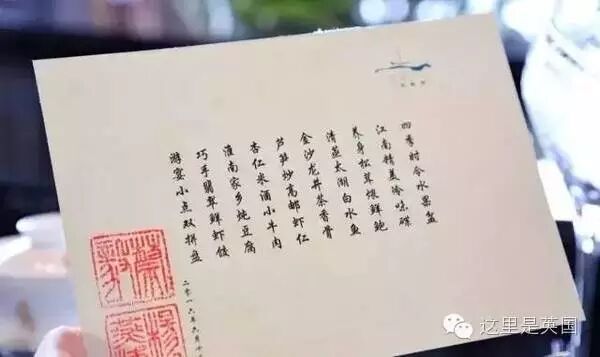 四季时令水果盆
江南精美冷味碟
养身松茸煨鲜鲍
清蒸太湖白水鱼
金沙龙井茶香骨
芦笋炒高邮虾仁
杏仁米酒小牛肉
淮南家乡炖豆腐
巧手翡翠鲜虾饺
游宴小点双拼盘
二零一六年六月
这里是英国